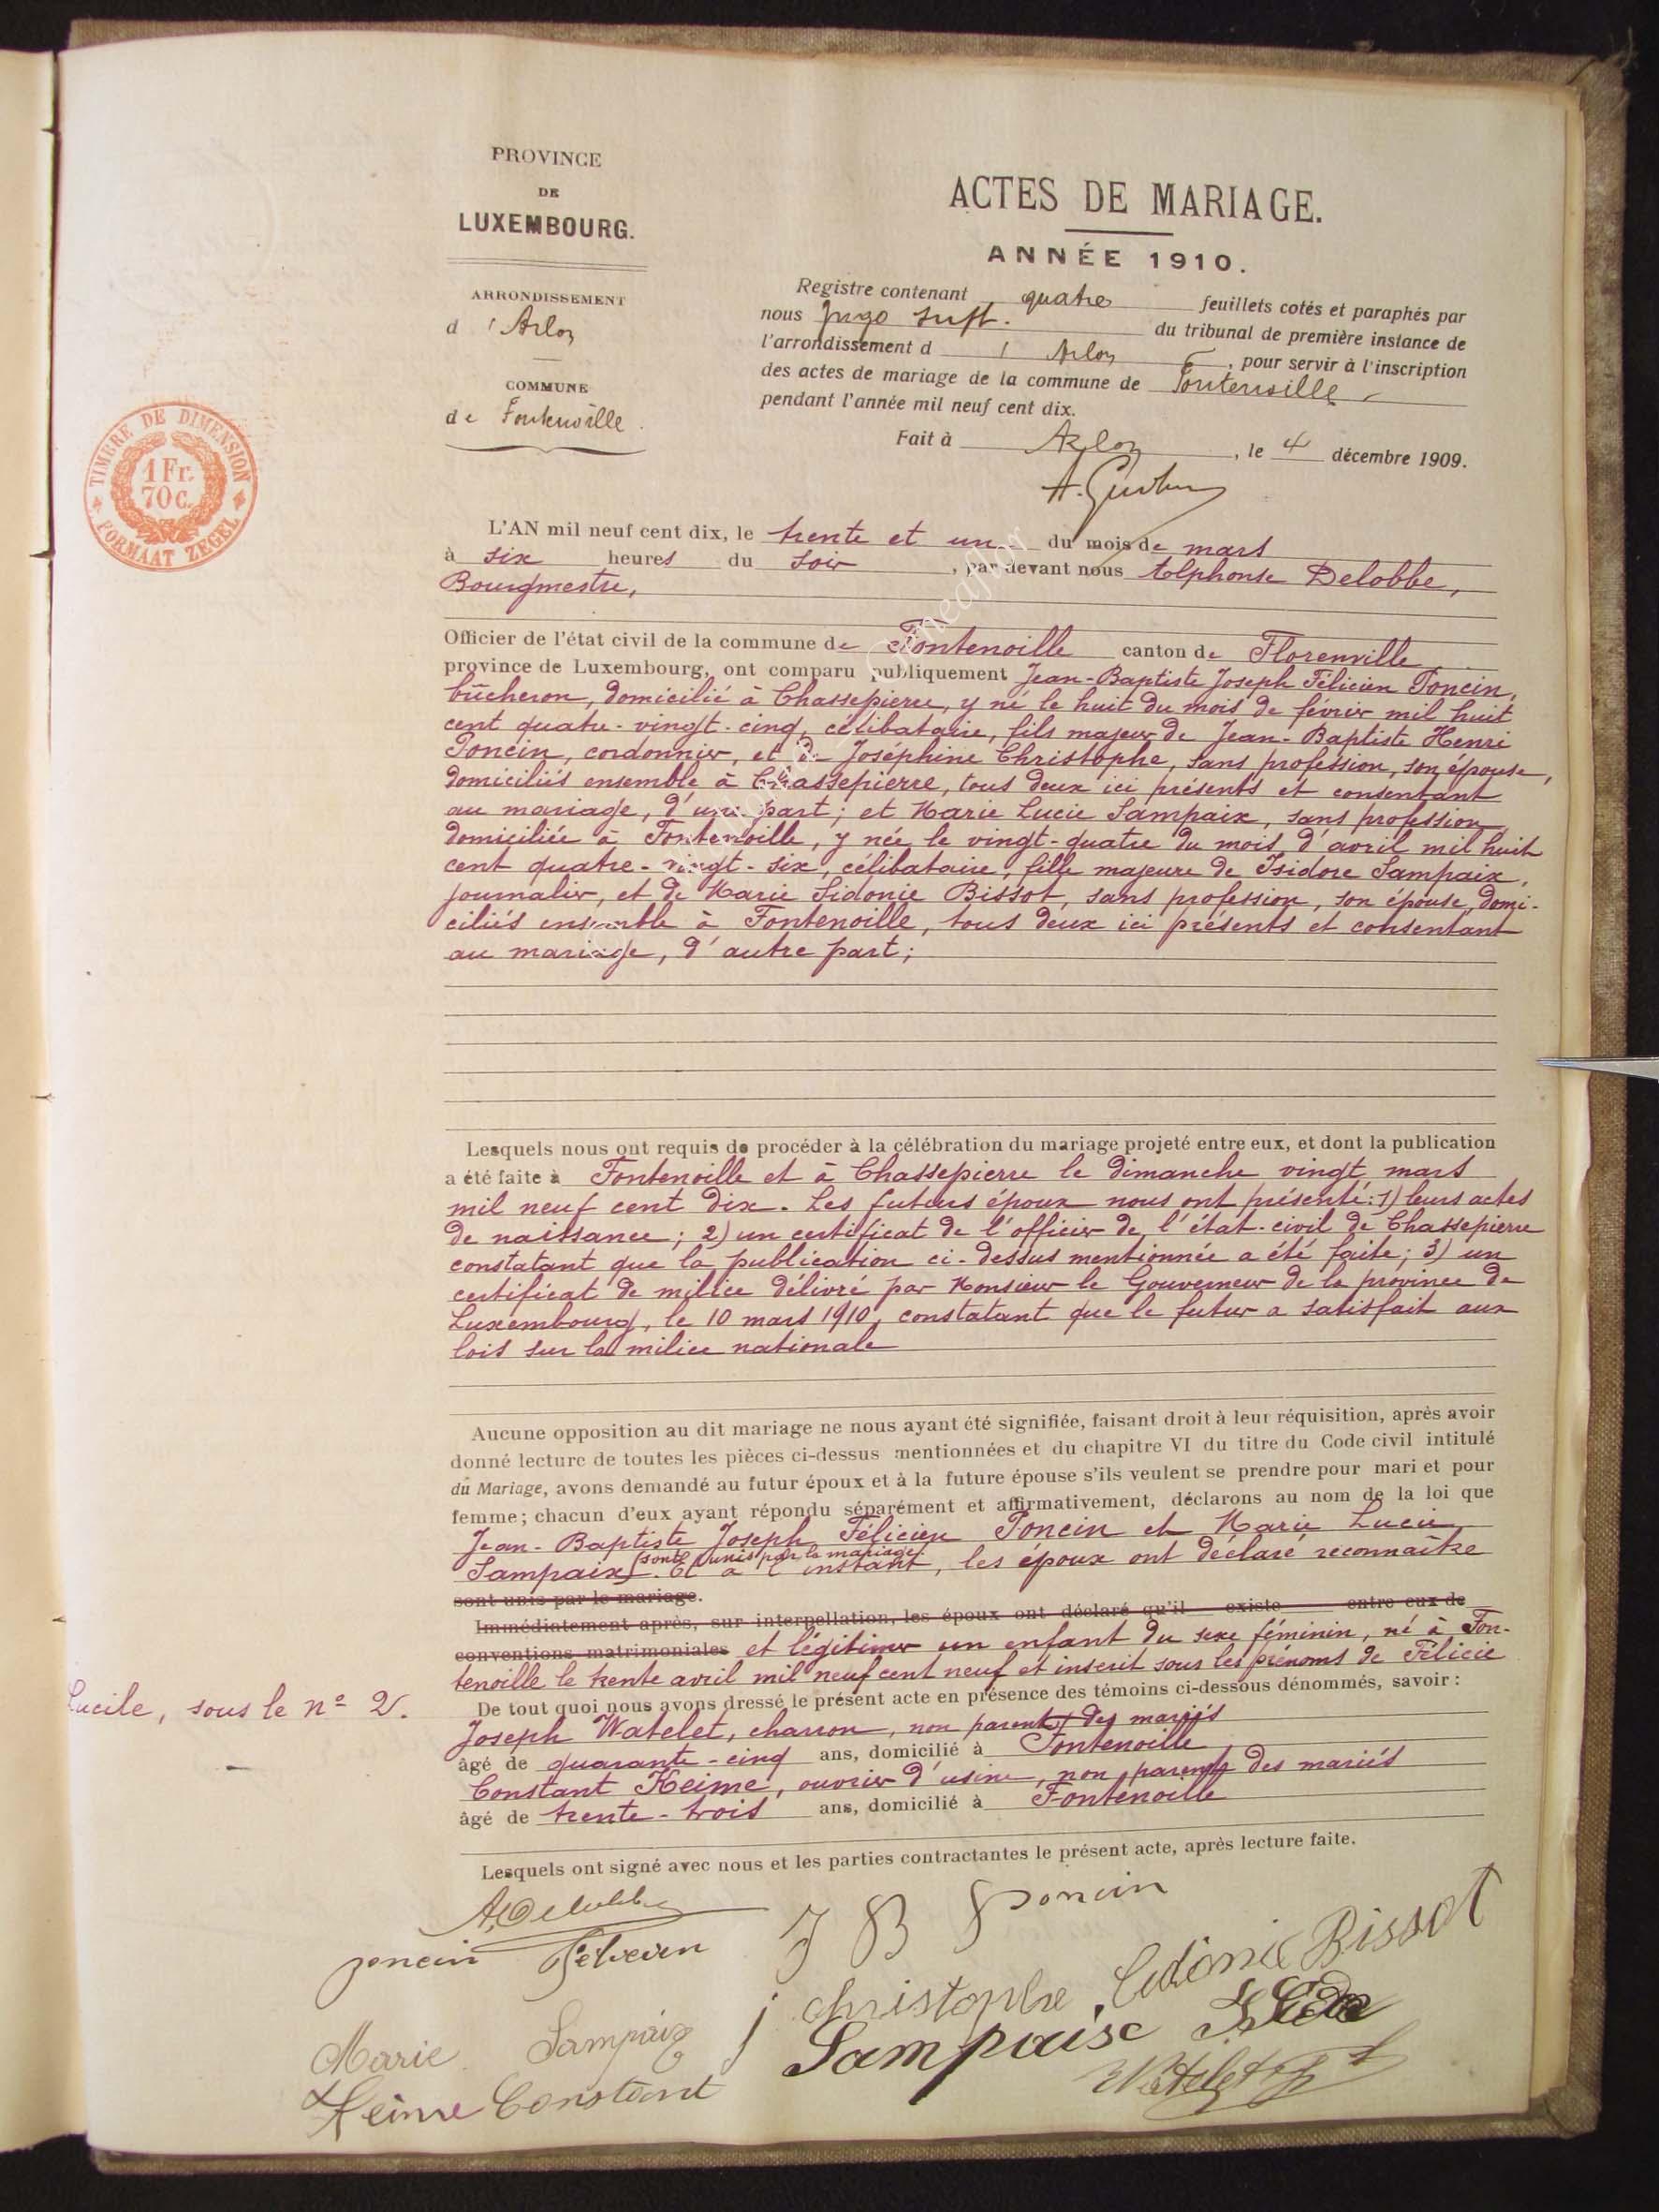 PROVINCE
DE
LUXEMBOURG.
ARRONDISSEMENT
d'Arlon
COMMUNE
de Fontenoille
ACTES DE MARIAGE.
ANNÉE 1910.
Registre contenant quatre feuillets cotés et paraphés par
nous Juge du tribunal de première instance de
l'arrondissement d'Arlon, pour servir à l'inscription
des actes de mariage de la commune de Fontenoille
pendant l'année mil neuf cent dix.
Fait à Arlon, le 4 décembre 1909.
TIMBRE DE DIMENSION
1 Fr.
70 c.
FORMAAT ZEGEL
L'AN mil neuf cent dix, le trente et un du mois de mars
à six heures du soir, par devant nous Alphonse Delobbe,
Bourgmestre,
Officier de l'état civil de la commune de Fontenoille canton de Florenville
province de Luxembourg, ont comparu publiquement Jean-Baptiste Joseph Félicien Poncin,
bûcheron, domicilié à Chassepierre, y né le huit du mois de février mil huit
cent quatre-vingt-cinq, célibataire, fils majeur de Jean-Baptiste Henri
Poncin, cordonnier, et de Joséphine Christophe, sans profession, son épouse,
domiciliés ensemble à Chassepierre, tous deux ici présents et consentant
au mariage, d'une part; et Marie Lucie Sampaix, sans profession,
domiciliée à Fontenoille, y née le vingt-quatre du mois d'avril mil huit
cent quatre-vingt-six, célibataire, fille majeure de Isidore Sampaix,
journalier, et de Marie Sidonie Bissot, sans profession, son épouse, domi-
ciliés ensemble à Fontenoille, tous deux ici présents et consentant
au mariage, d'autre part;
Lesquels nous ont requis de procéder à la célébration du mariage projeté entre eux, et dont la publication
a été faite à Fontenoille et à Chassepierre le dimanche vingt mars
mil neuf cent dix. Les futurs époux nous ont présenté: 1) leurs actes
de naissance; 2) un certificat de l'officier de l'état-civil de Chassepierre
constatant que la publication ci-dessus mentionnée a été faite; 3) un
certificat de milice délivré par Monsieur le Gouverneur de la province de
Luxembourg, le 10 mars 1910, constatant que le futur a satisfait aux
lois sur la milice nationale
Aucune opposition au dit mariage ne nous ayant été signifiée, faisant droit à leur réquisition, après avoir
donné lecture de toutes les pièces ci-dessus mentionnées et du chapitre VI du titre du Code civil intitulé
du Mariage, avons demandé au futur époux et à la future épouse s'ils veulent se prendre pour mari et pour
femme; chacun d'eux ayant répondu séparément et affirmativement, déclarons au nom de la loi que
Jean-Baptiste Joseph Félicien Poncin et Marie Lucie
sont unis par le mariage
Sampaix. Et à l'instant, les époux ont déclaré reconnaître
sont unis par le mariage.
Immédiatement après, sur interpellation, les époux ont déclaré qu'il existe entre eux de
conventions matrimoniales et légitimer un enfant du sexe féminin, né à Fon-
tenoille le trente avril mil neuf cent neuf et inscrit sous les prénoms de Félicie
Lucile, sous le n° 2.
De tout quoi nous avons dressé le présent acte en présence des témoins ci-dessous dénommés, savoir :
Joseph Watelet, charron, non parent des mariés
âgé de quarante-cinq ans, domicilié à Fontenoille
Constant Heime, ouvrier d'usine, non parent des mariés
âgé de trente-trois ans, domicilié à Fontenoille
Lesquels ont signé avec nous et les parties contractantes le présent acte, après lecture faite.
A. Delobbe
J B Poncin
poncin
Sidonie Bissot
J christophe
Marie Sampaix
Sampaix
Heime Constant
Watelet